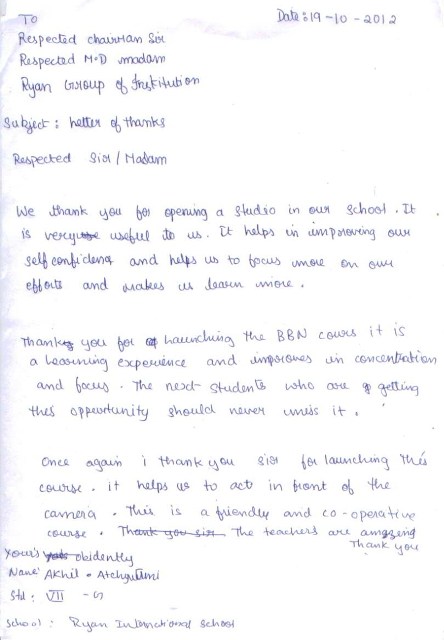 To
Date: 19-10-2012
Respected chairman Sir
Respected M.D madam
Ryan Group of Institution
Subject: Letter of thanks
Respected Sir / Madam
We thank you for opening a studio in our school. It
is very useful to us. It helps in improving our
self confidence and helps us to focus more on our
efforts and makes us learn more.
Thank you for launching the BBN cours it is
a learning experience and improves in concentration
and focus. The next students who are getting
this oppurtunity should never miss it.
Once again i thank you sir for launching this
course. it helps us to act in front of the
camera. This is a friendly and co-operative
course. Thank you sir. The teachers are amazing
Thank you
Your's obidently
Name: Akhil.
Std: VII - G
School: Ryan International School